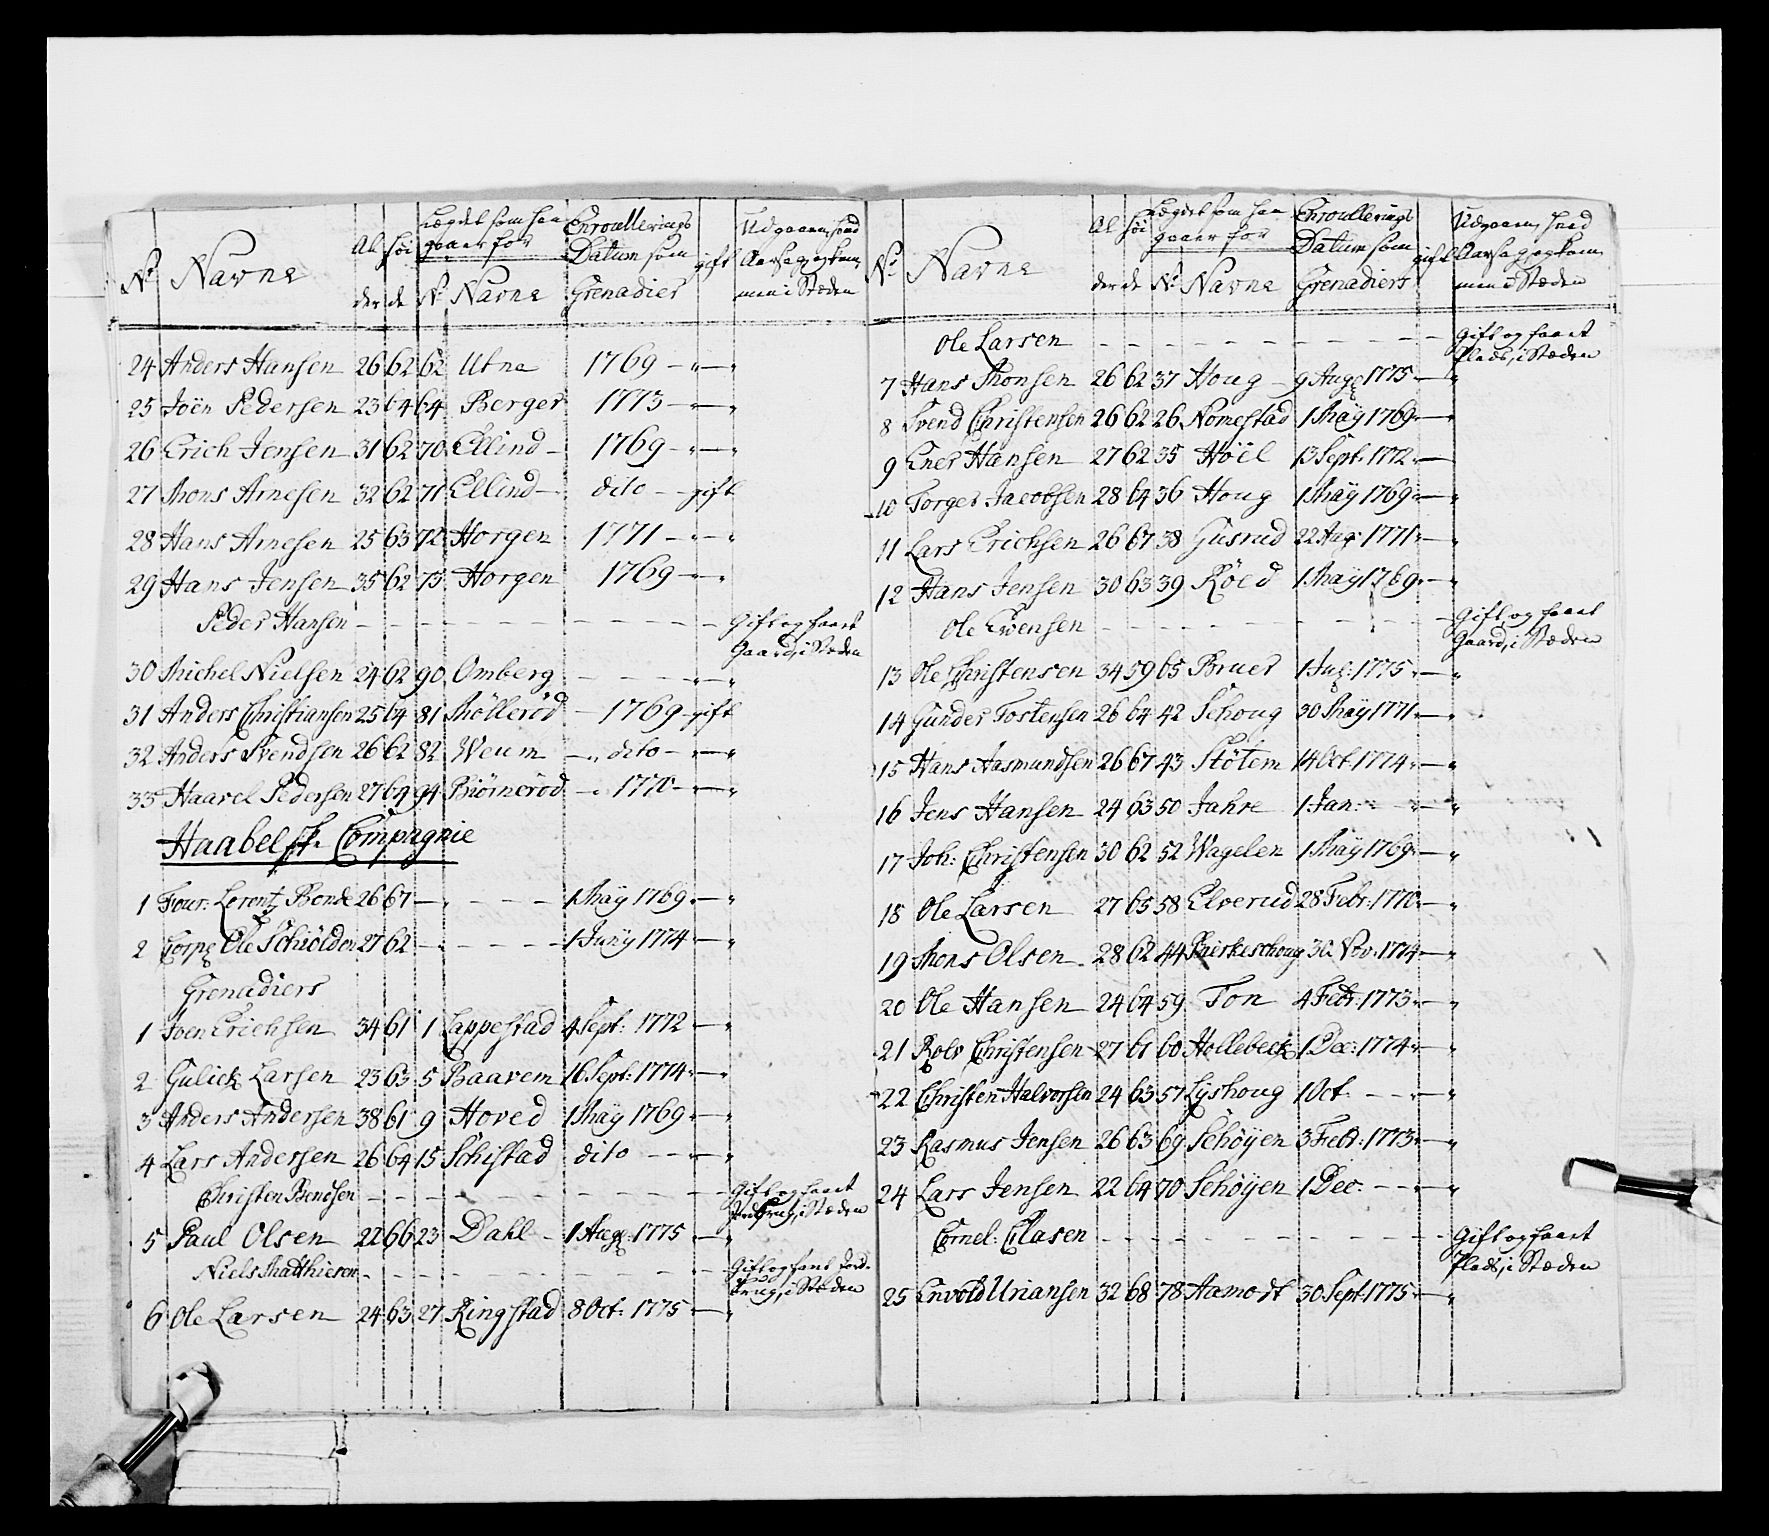 No Navne Alder Høide Lægdet som han gaaer for No Navne Enroullerings Datum som Grenadier gift Udgaaen, hvad Aarsag, og kommen i Stæden
24 Anders Hansen 26 62 62 Utne 1769 - " - "
25 Joën Pedersen 23 64 64 Berger 1773 - " - "
26 Erich Jensen 31 62 70 Ellind - 1769 - " - "
27 Mons Arnesen 32 62 71 Ellind - dito - - gift
28 Hans Arnesen 25 63 72 Horgen 1771 - " - "
29 Hans Jensen 35 62 75 Horgen 1769 - " - "
Peder Hansen - - - - - - - Gift og faaet
Gaard, i Stæden
30 Michel Nielsen 24 62 90 Omberg - - - " - "
31 Anders Christiansen 25 64 81 Mölleröd - 1769 - gift
32 Anders Svendsen 26 62 82 Weum - " dito - " - "
33 Haarel Pedersen 27 64 94 Biörneröd - " 1770 - " - "
Haabelske Compagnie
1 Four: Lorentz Bonde 26 67 - " - - - 1 Maÿ 1769 " - "
2 Corp: Ole Schiölden 27 62 - " - - - 1 Junÿ 1774 " - "
Grenadiers
1 Joen Erichsen 34 61 1 Lappestad 4 Sept: 1772 " - "
2 Gulich Larsen 23 63 5 Baarem 16 Sept: 1774 " - "
3 Anders Andersen 38 61 9 Hoved 1 Maÿ 1769 " - "
4 Lars Andersen 26 64 15 Schistad dito - - " - "
Christen Bendsen - - - - - - - Gift og faaet
i Stæden
5 Paul Olsen 22 66 23 Dahl - 1 Aug: 1775 " - "
Niels Matthiesen - - - - - - - Gift og faaet Jord-
brug, i Stæden
6 Ole Larsen 24 63 27 Ringstad 8 Oct: 1775 " - "
No Navne Alder Høide Lægdet som han gaaer for No Navne Enroullerings Datum som Grenadiers gift Udgaaen, hvad Aarsag, og kommen i Stæden
Ole Larsen - - - - - - - Gift og faaet
Plads, i Stæden
7 Hans Monsen 26 62 37 Houg - 9 Aug: 1775 " - "
8 Svend Christensen 26 62 26 Nomestad 1 Maÿ 1769 " - "
9 Ener Hansen 27 62 35 Höil 13 Sept: 1772 " -
10 Torger Jacobsen 28 64 36 Houg 1 Maÿ 1769 " - "
11 Lars Erichsen 26 67 38 Gusrud 22 Aug: 1771 " - "
12 Hans Jensen 30 63 39 Röed 1 Maÿ 1769 " - "
Ole Evensen - - - - - - - Gift og faaet
Gaard, i Stæden
13 Ole Christensen 34 59 65 Bruer 1 Aug: 1775 " - "
14 Gunder Tostensen 26 64 42 Schoug 30 Maÿ 1771 " - "
15 Hans Aasmundsen 26 67 43 Stötem 14 Oct: 1774 " - "
16 Jens Hansen 24 63 50 Jahre 1 Jan: - " - "
17 Joh: Christensen 30 62 52 Wagelen 1 Maÿ 1769 " - "
18 Ole Larsen 27 65 58 Elverud 28 Febr: 1770 " - "
19 Mons Olsen 28 62 44 30 Nov: 1774 " - "
20 Ole Hansen 24 64 59 Ton 4 Febr: 1773 " - "
21 Rolv Christensen 27 61 60 Hollebeck 1 Dec: 1774 " - "
22 Christen Halvorsen 24 63 57 Lÿshoug 1 Oct: - - " - "
23 Rasmus Jensen 26 63 69 Schöÿen 3 Febr: 1773 " - "
24 Lars Jensen 22 64 70 Schöÿen 1 Dec: - - " - "
Cornel: Clasen - - - - - - - Gift og faaet
Plads, i Stæden
25 Envold Uriansen 32 68 78 Aamodt 30 Sept: 1775 " - "